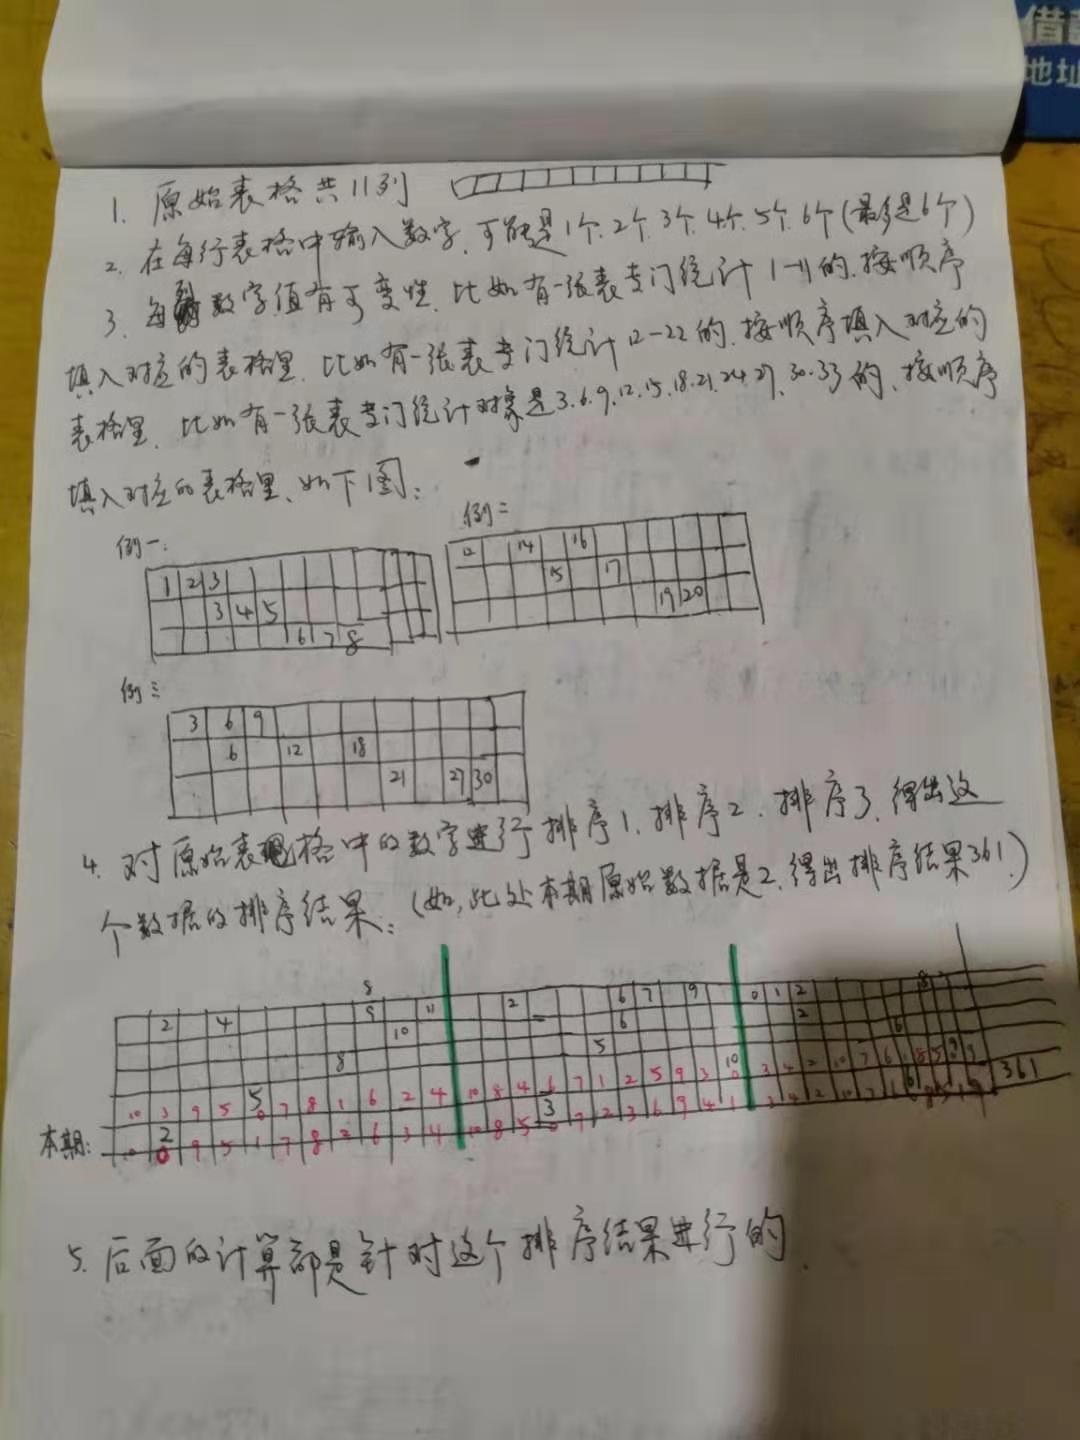 借
地址
1. 原始表格共11列
2. 在每行表格中输入数字,可能是1个、2个、3个、4个、5个、6个(最多是6个)
3. 每列数字值有可变性,比如有一张表专门统计1-11的,按顺序
填入对应的表格里,比如有一张表专门统计12-22的,按顺序填入对应的
表格里,比如有一张表专门统计对象是3.6.9.12.15.18.21.24.27.30.33的,按顺序
填入对应的表格里,如下图:
例一:
例二
1 2 3
3 4 5
6 7 8
12 14 16
15 17
19 20
例三
3 6 9
6 12 18
21 27 30
4. 对原始表格中的数字进行排序1,排序2,排序3,得出这
个数据的排序结果:(如,此处本期原始数据是2,得出排序结果361)
8
2 4 9 11 2 6 7 9 0 1 2 8
10 6 2 6
8 5
10 3 9 5 0 7 8 1 6 2 4 10 8 4 6 7 1 2 5 9 3 0 3 4 2 10 7 6 1 8 5 0 9 361
本期: 10 0 9 5 1 7 8 2 6 3 4 10 8 5 0 7 2 3 6 9 4 1 3 4 2 10 7
5. 后面的计算都是针对这个排序结果进行的.